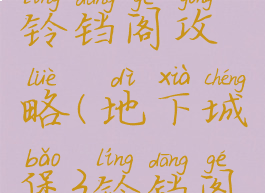 líng dāng gé gōng
铃铛阁攻
lüè dì xià chéng
略(地下城
bǎo líng dāng gé
堡)铃铛阁